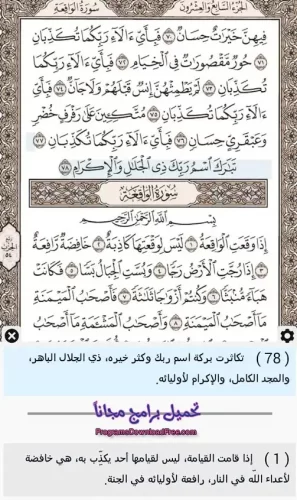 الجزء السابع والعشرون
سورة الواقعة
فِيهِنَّ خَيْرَٰتٌ حِسَانٌ ٧٠ فَبِأَيِّ ءَالَآءِ رَبِّكُمَا تُكَذِّبَانِ
٧١ حُورٌ مَّقْصُورَٰتٌ فِي ٱلْخِيَامِ ٧٢ فَبِأَيِّ ءَالَآءِ رَبِّكُمَا
تُكَذِّبَانِ ٧٣ لَمْ يَطْمِثْهُنَّ إِنسٌ قَبْلَهُمْ وَلَا جَآنٌّ ٧٤ فَبِأَيِّ
ءَالَآءِ رَبِّكُمَا تُكَذِّبَانِ ٧٥ مُتَّكِـِٔينَ عَلَىٰ رَفْرَفٍ خُضْرٍ
وَعَبْقَرِيٍّ حِسَانٍ ٧٦ فَبِأَيِّ ءَالَآءِ رَبِّكُمَا تُكَذِّبَانِ ٧٧
تَبَٰرَكَ ٱسْمُ رَبِّكَ ذِي ٱلْجَلَٰلِ وَٱلْإِكْرَامِ ٧٨
سُورَةُ الوَاقِعَةِ
بِسْمِ ٱللَّهِ ٱلرَّحْمَٰنِ ٱلرَّحِيمِ
إِذَا وَقَعَتِ ٱلْوَاقِعَةُ ١ لَيْسَ لِوَقْعَتِهَا كَاذِبَةٌ ٢ خَافِضَةٌ رَّافِعَةٌ
٣ إِذَا رُجَّتِ ٱلْأَرْضُ رَجًّا ٤ وَبُسَّتِ ٱلْجِبَالُ بَسًّا ٥ فَكَانَتْ
هَبَآءً مُّنۢبَثًّا ٦ وَكُنتُمْ أَزْوَٰجًا ثَلَٰثَةً ٧ فَأَصْحَٰبُ ٱلْمَيْمَنَةِ
مَآ أَصْحَٰبُ ٱلْمَيْمَنَةِ ٨ وَأَصْحَٰبُ ٱلْمَشْـَٔمَةِ مَآ أَصْحَٰبُ
(78) تكاثرت بركة اسم ربك وكثر خيره، ذي الجلال الباهر،
والمجد الكامل، والإكرام لأوليائه.
تحميل برامج مجانا
ProgramsDownloadFree.com
(1) إذا قامت القيامة، ليس لقيامها أحد يكذِّب به، هي خافضة
لأعداء الله في النار، رافعة لأوليائه في الجنة.